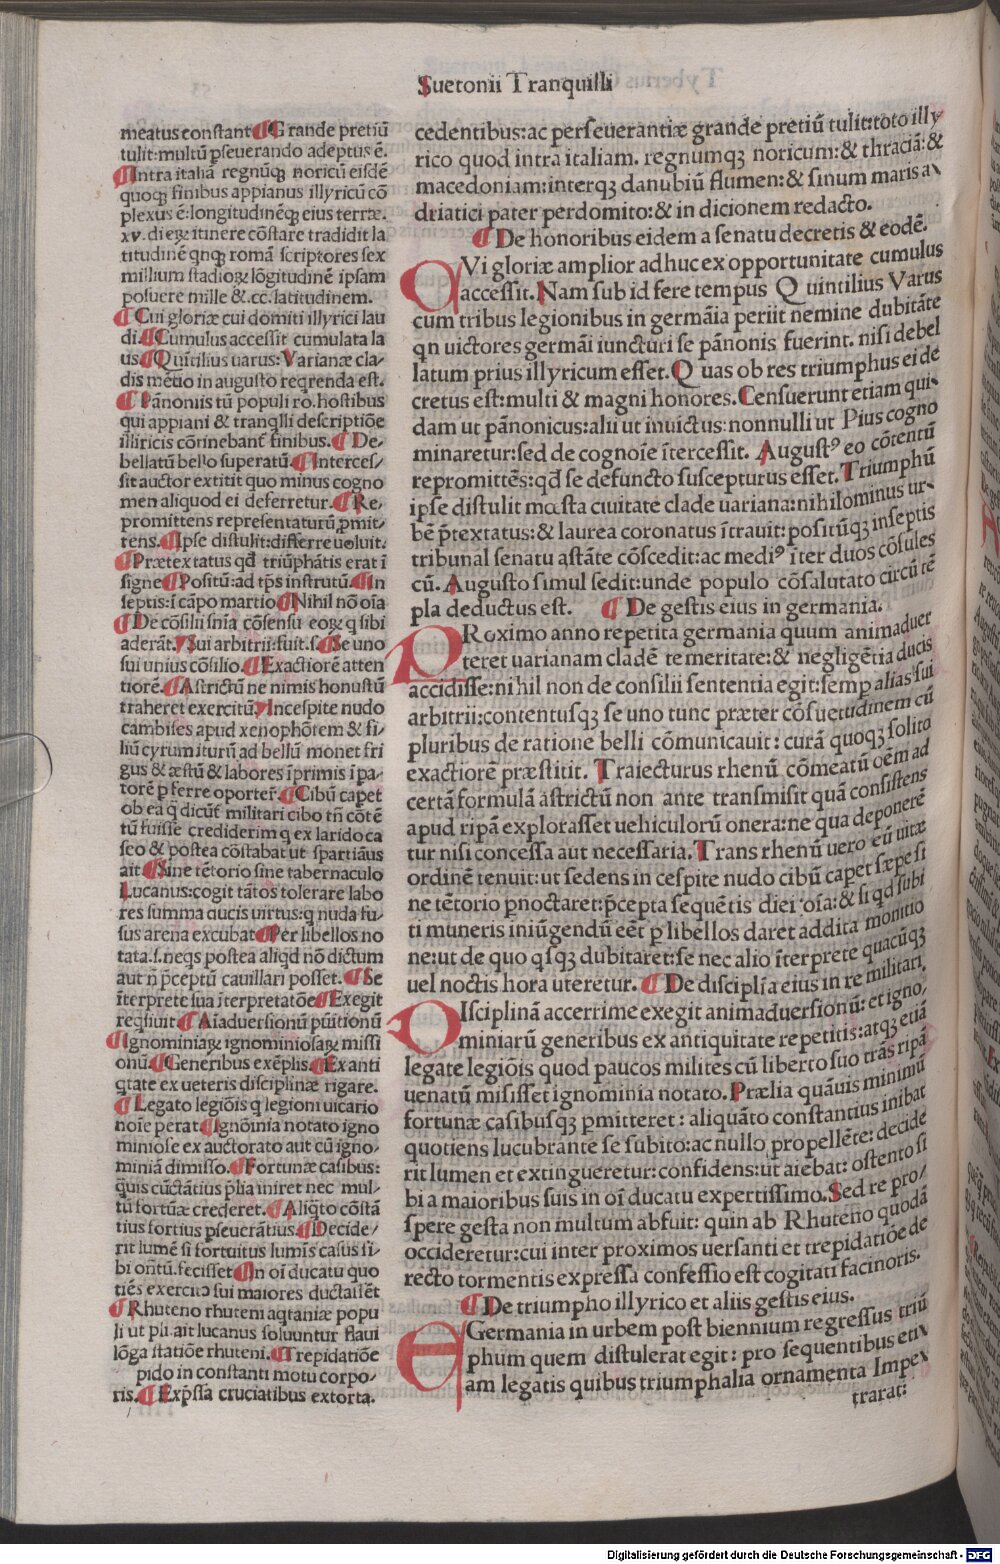 Suetonii Tranquilli
meatus constant ¶ Grande pretiū
tulit: multū pseuerando adeptus ē.
¶ Intra italiā regnūqꝫ noricū eisdē
quoqꝫ finibus appianus illyricū cō
plexus ē: longitudinēqꝫ eius terræ.
xv. dieꝝ itinere cōstare tradidit la
titudinē qnqꝫ romā scriptores sex
millium stadioꝝ lōgitudinē ipsam
posuere mille &.cc. latitudinem.
¶ Cui gloriæ cui domiti illyrici lau
di. ¶ Cumulus accessit cumulata la
us ¶ Quītilius uarus: Varianæ cla-
dis mētio in augusto reqrenda est.
¶ Pānoniis tū populi ro. hostibus
qui appiani & tranqlli descriptiōe
illiricis cōtinebant̄ finibus. ¶ De-
bellatū bello superatū. ¶ Interces-
sit auctor extitit quo minus cogno
men aliquod ei deferretur. ¶ Re-
promittens representaturū pmit-
tens. ¶ Ipse distulit: differre uoluit.
¶ Prætextatus qd triūphātis erat ī
signe ¶ Positū: ad tp̄s instrutū. ¶ In
septis: ī cāpo martio ¶ Nihil nō oīa
¶ De cōsilii snīa cōsensu eoꝝ q sibi
aderāt. ¶ Sui arbitrii: fuit .s. ¶ Se uno
sui unius cōsilio. ¶ Exactiorē atten
tiorē. ¶ Astrictū ne nimis honustū
traheret exercitū. ¶ In cespite nudo
cambises apud xenophōtem & fi-
liū cyrum iturū ad bellū monet fri
gus & æstū & labores īprimis īpa-
torē p ferre oportet̄. ¶ Cibū capet
ob ea q dicūt̄ militari cibo tn̄ cōtē
tū fuisse crediderim q ex larido ca
seo & postea cōstabat ut spartiāus
ait ¶ Sine tētorio sine tabernaculo
Lucanus: cogit tātos tolerare labo
res summa ducis uirtus: q nuda fu-
sus arena excubat ¶ Per libellos no
tata .s. neqs postea aliqd nō dictum
aut n̄ p̄ceptū cauillari posset. ¶ Se
īterprete sua īterpretatōe ¶ Exegit
reqsiuit ¶ Aīaduersionū pūitionū
¶ Ignominiaꝝ ignominiosaꝝ missi
onū. ¶ Generibus exēplis. ¶ Ex anti
qtate ex ueteris disciplinæ rigare.
¶ Legato legiōis q legioni uicario
noīe perat ¶ Ignōinia notato igno
miniose ex auctorato aut cū igno-
miniā dimisso. ¶ Fortunæ casibus:
quis cūctātius p̄lia iniret nec mul-
tū fortūæ crederet. ¶ Aliqto cōstā
tius fortius pseuerātius. ¶ Decide-
rit lumē si fortuitus lumīs casus si-
bi ontū. fecisset ¶ In oī ducatu quo
tiēs exercitū sui maiores ductassēt
¶ Rhuteno rhuteni aqtaniæ popu
li ut pli. ait lucanus soluuntur flaui
lōga statiōe rhuteni. ¶ Trepidatiōe
pido in constanti motu corpo-
ris. ¶ Exp̄ssa cruciatibus extorta.
cedentibus: ac perseuerantiæ grande pretiū tulit: toto illy
rico quod intra italiam. regnumqꝫ noricum: & thraciā: &
macedoniam: interqꝫ danubiū flumen: & sinum maris a-
driatici pater perdomito: & in dicionem redacto.
¶ De honoribus eidem a senatu decretis & eodē.
QVi gloriæ amplior adhuc ex opportunitate cumulus
accessit. Nam sub id fere tempus Quintilius Varus
cum tribus legionibus in germāia periit nemine dubitāte
qn uictores germāi iuncturi se pānonis fuerint. nisi debel
latum prius illyricum esset. Quas ob res triumphus ei de
cretus est: multi & magni honores. Censuerunt etiam qui-
dam ut pānonicus: alii ut inuictus: nonnulli ut Pius cogno
minaretur: sed de cognoīe ītercessit. Augustꝰ eo cōtentū
repromittēs: qd se defuncto suscepturus esset. Triumphū
ipse distulit mœsta ciuitate clade uariana: nihilominus ur-
bē p̄textatus: & laurea coronatus ītrauit: positūqꝫ in septis
tribunal senatu astāte cōscedit: ac mediꝰ īter duos cōsules
cū. Augusto simul sedit: unde populo cōsalutato circū tē
pla deductus est. ¶ De gestis eius in germania.
PRoximo anno repetita germania quum animaduer
teret uarianam cladē temeritate: & negligētia ducis
accidisse: nihil non de consilii sententia egit: semp alias sui
arbitrii: contentusqꝫ se uno tunc præter cōsuetudinem cū
pluribus de ratione belli cōmunicauit: curā quoqꝫ solito
exactiorē præstitit. Traiecturus rhenū cōmeatū oēm ad
certā formulā astrictū non ante transmisit quā consistens
apud ripā explorasset uehiculorū onera: ne qua deponerē
tur nisi concessa aut necessaria. Trans rhenū uero eū uitæ
ordinē tenuit: ut sedens in cespite nudo cibū capet sæpe si
ne tētorio pnoctaret: p̄cepta sequētis diei oīa: & si qd subi
ti muneris iniūgendū eēt p libellos daret addita monitio
ne: ut de quo qsqꝫ dubitaret: se nec alio īterprete quacūqꝫ
uel noctis hora uteretur. ¶ De disciplīa eius in re militari.
DIsciplinā accerrime exegit animaduersionū: et igno-
miniarū generibus ex antiquitate repetitis: atqꝫ etiā
legate legiōis quod paucos milites cū liberto suo trās ripā
uenatū misisset ignominia notato. Prælia quāuis minimū
fortunæ casibusqꝫ pmitteret: aliquāto constantius inibat
quotiens lucubrante se subito: ac nullo propellēte: decide
rit lumen et extingueretur: confidens: ut aiebat: ostento si
bi a maioribus suis in oī ducatu expertissimo. Sed re pro-
spere gesta non multum abfuit: quin ab Rhuteno quodā
occideretur: cui inter proximos uersanti et trepidatiōe de
recto tormentis expressa confessio est cogitati facinoris.
¶ De triumpho illyrico et aliis gestis eius.
E Germania in urbem post biennium regressus triū
phum quem distulerat egit: pro sequentibus eti-
am legatis quibus triumphalia ornamenta Impe-
trarat:
Digitalisierung gefördert durch die Deutsche Forschungsgemeinschaft - DFG